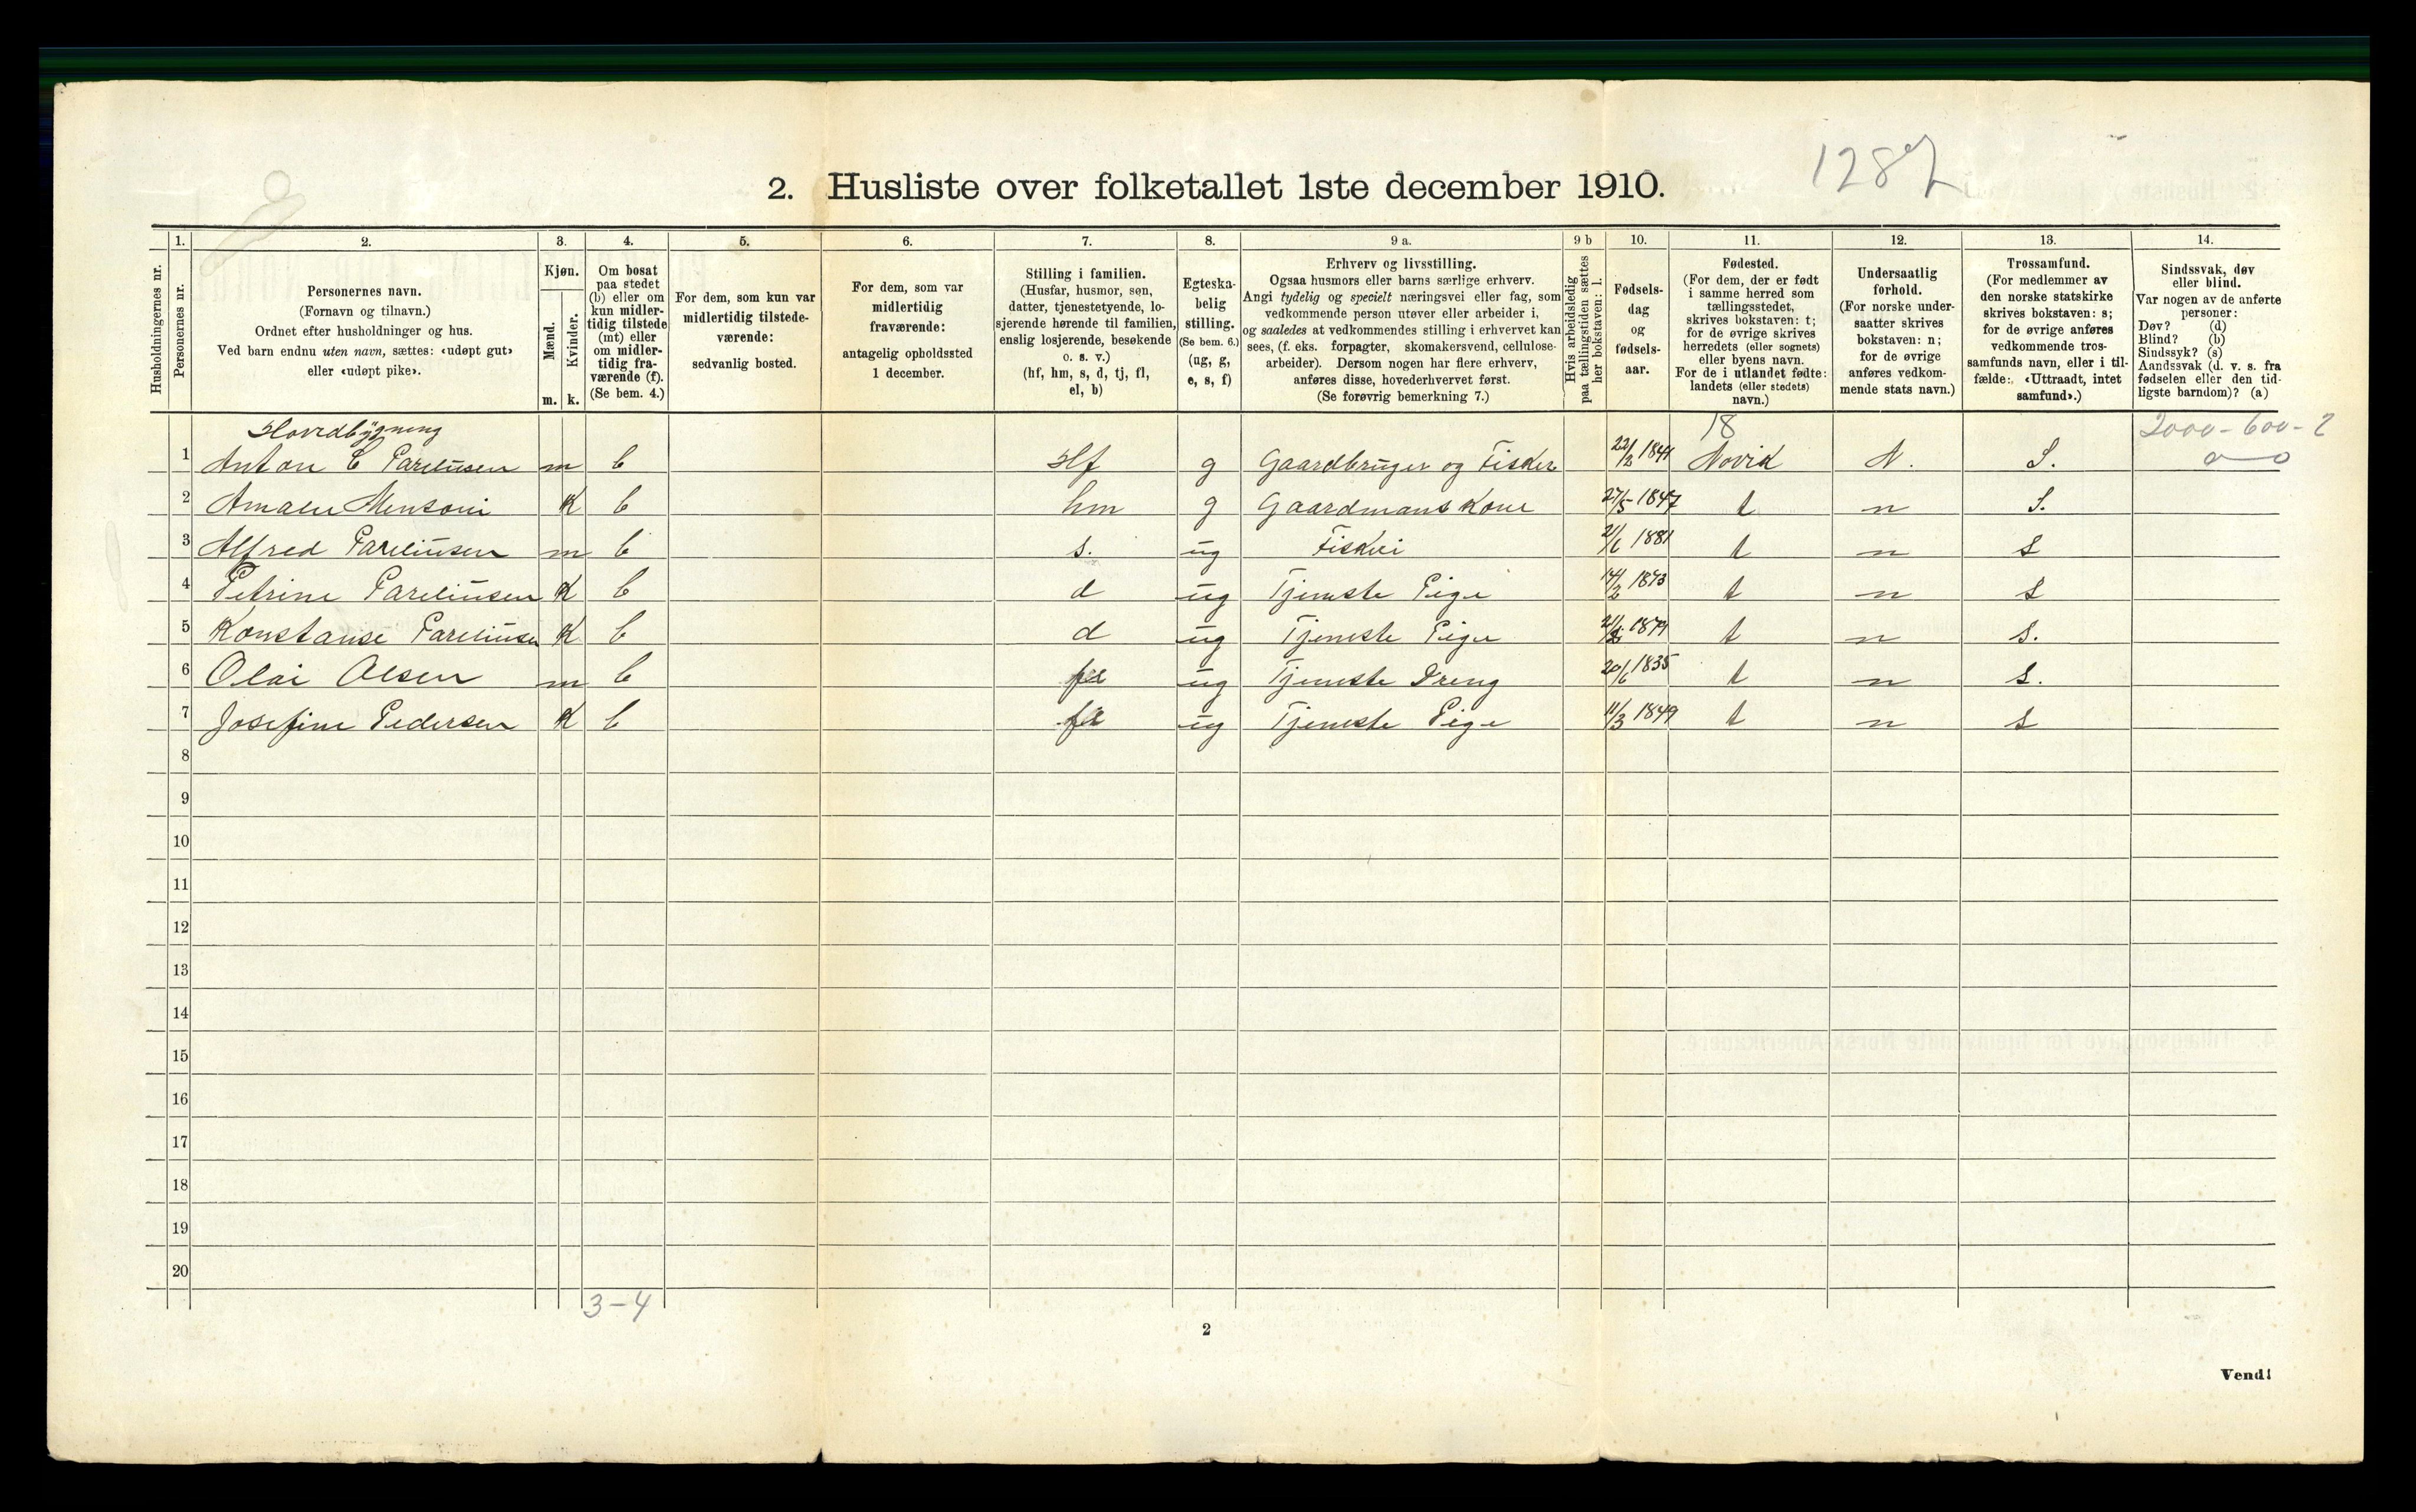 1287
2. Husliste over folketallet 1ste december 1910.
Husholdningernes nr.
1. Personernes nr.
2. Personernes navn. (Fornavn og tilnavn.) Ordnet efter husholdninger og hus. Ved barn endnu uten navn, sættes: «udøpt gut» eller «udøpt pike».
3. Kjøn. Mænd. m. Kvinder. k.
4. Om bosat paa stedet (b) eller om kun midlertidig tilstede (mt) eller om midlertidig fraværende (f). (Se bem. 4.)
5. For dem, som kun var midlertidig tilstedeværende: sedvanlig bosted.
6. For dem, som var midlertidig fraværende: antagelig opholdssted 1 december.
7. Stilling i familien. (Husfar, husmor, søn, datter, tjenestetyende, losjerende hørende til familien, enslig losjerende, besøkende o. s. v.) (hf, hm, s, d, tj, fl, el, b)
8. Egteskabelig stilling. (Se bem. 6.) (ug, g, e, s, f)
9 a. Erhverv og livsstilling. Ogsaa husmors eller barns særlige erhverv. Angi tydelig og specielt næringsvei eller fag, som vedkommende person utøver eller arbeider i, og saaledes at vedkommendes stilling i erhvervet kan sees, (f. eks. forpagter, skomakersvend, cellulosearbeider). Dersom nogen har flere erhverv, anføres disse, hovederhvervet først. (Se forøvrig bemerkning 7.)
9 b Hvis arbeidsledig paa tællingstiden sættes her bokstaven: l.
10. Fødselsdag og fødselsaar.
11. Fødested. (For dem, der er født i samme herred som tællingsstedet, skrives bokstaven: t; for de øvrige skrives herredets (eller sognets) eller byens navn. For de i utlandet fødte: landets (eller stedets) navn.)
12. Undersaatlig forhold. (For norske undersaatter skrives bokstaven: n; for de øvrige anføres vedkommende stats navn.)
13. Trossamfund. (For medlemmer av den norske statskirke skrives bokstaven: s; for de øvrige anføres vedkommende trossamfunds navn, eller i tilfælde: «Uttraadt, intet samfund».)
14. Sindssvak, døv eller blind. Var nogen av de anførte personer: Døv? (d) Blind? (b) Sindssyk? (s) Aandssvak (d. v. s. fra fødselen eller den tidligste barndom)? (a)
Hovedbygning 18 2000-600-2
1 Anton C Pareliusen m b Hf g Gaardbruger og Fisker 22/2 Novik N. S. 0 0
2 k b hm g Gaardmans Kone 27/5-1847 t n S.
3 Alfred Pareliusen m b s. ug Fisker 1881 t n s
4 Petrine Pareliusen K b d ug Tjeneste Pige 1873 t n s
5 Konstanse Pareliusen K b d ug Tjeneste Pige 1879 t n s.
6 Olai Olsen m b ug Tjeneste Dreng 20/6 1835 t n s.
7 Josefine Pedersen K b ug Tjeneste Pige 11/3 1849 t n s
8
9
10
11
12
13
14
15
16
17
18
19
20
3-4
2
Vend!